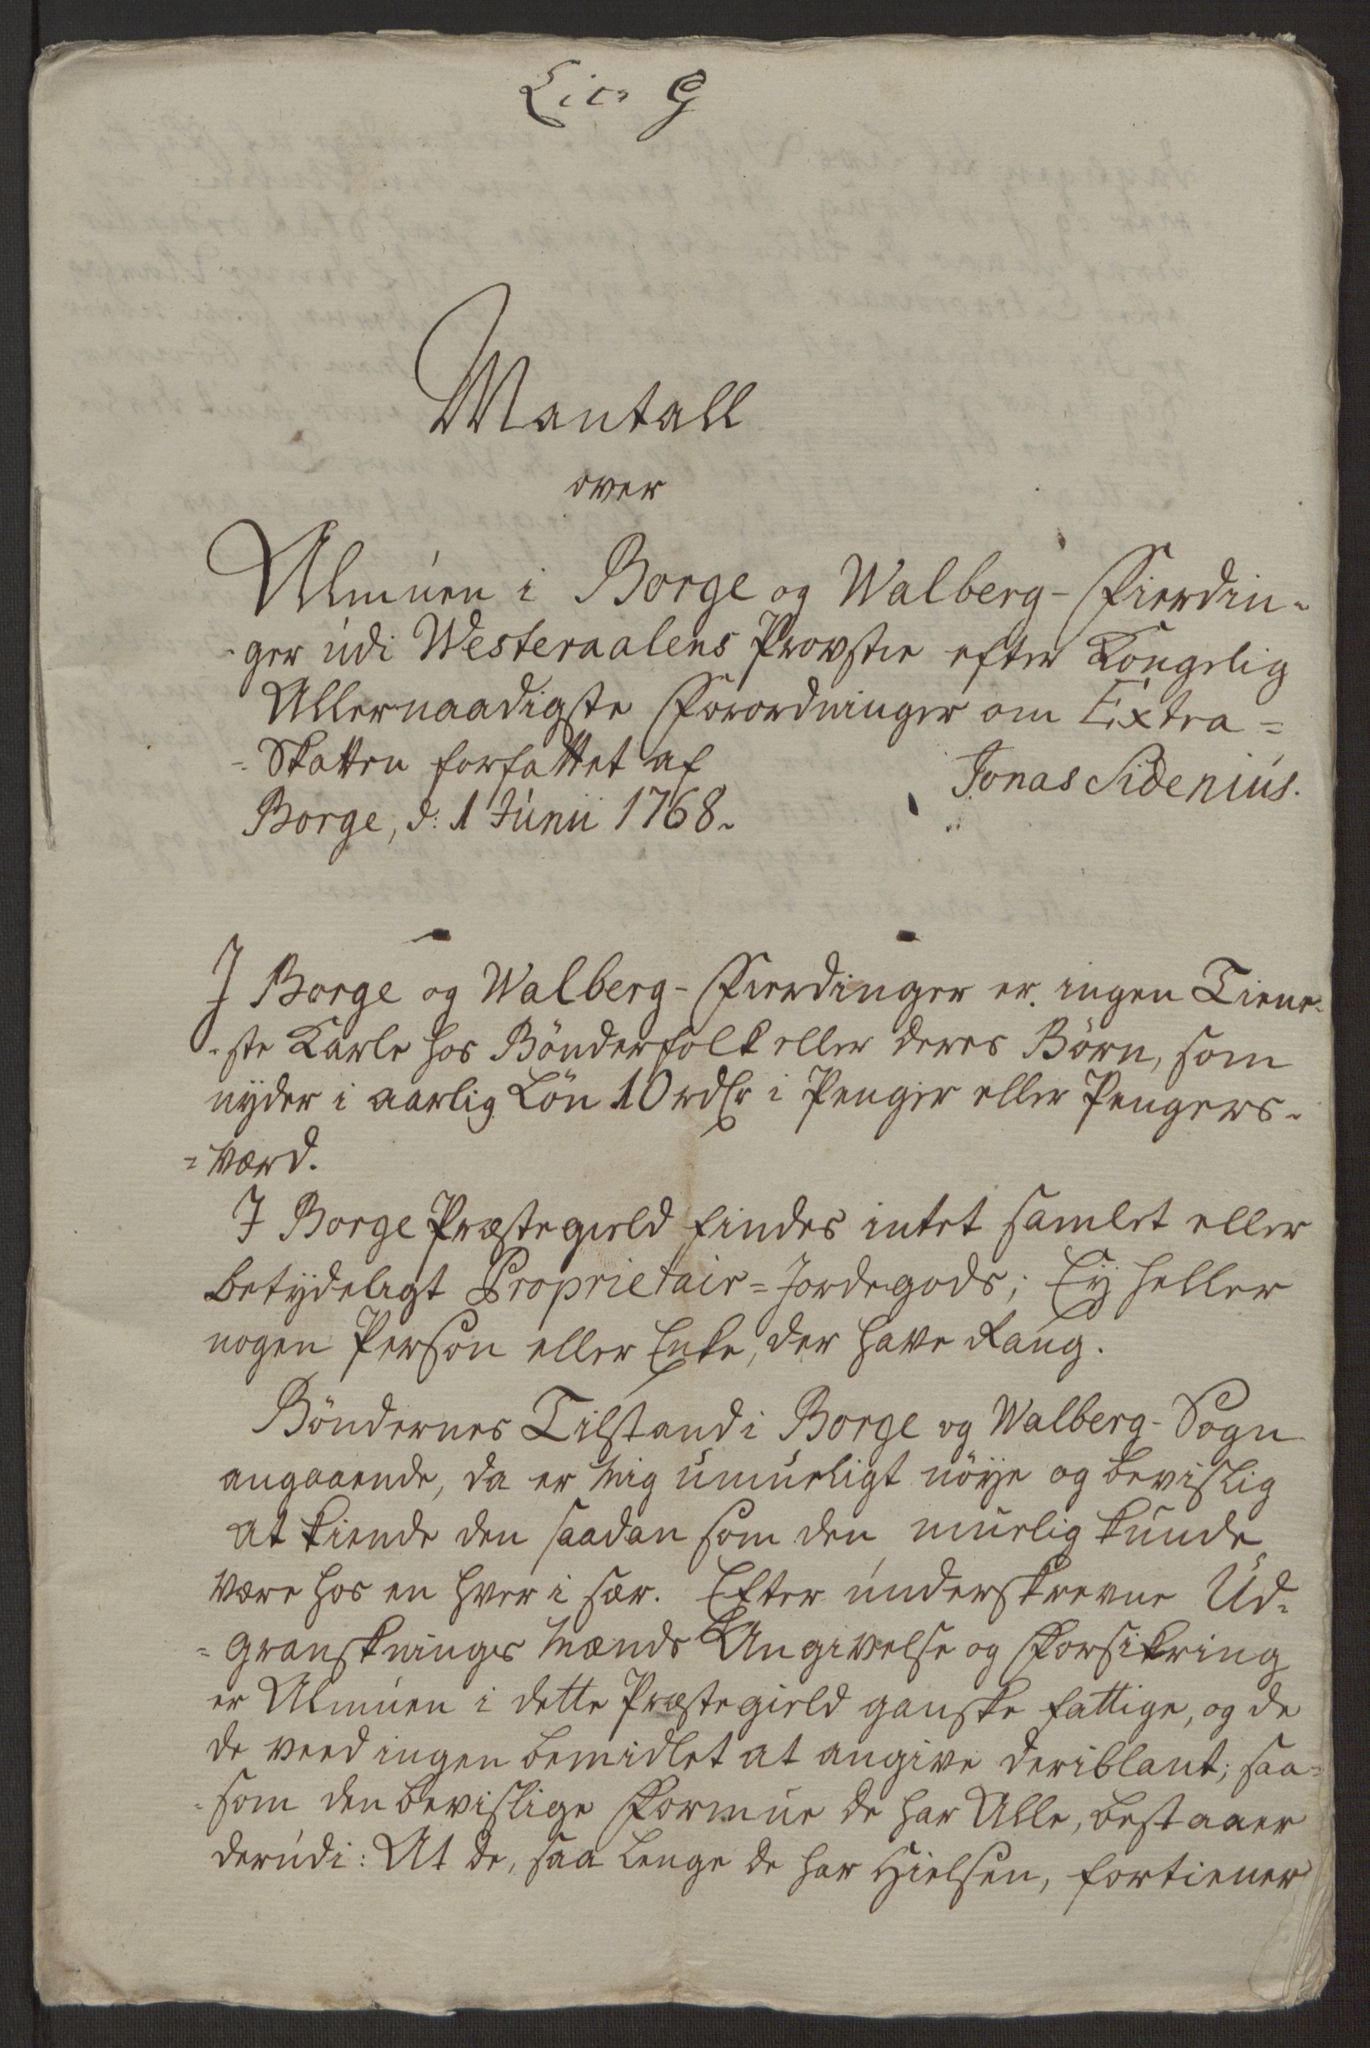 Lit. G
Mantall
over
Almúen i Borge og Walberg-Fierdin-
-ger údi Westeraalens Provstie efter Kongelig
Allernaadigste Forordninger om Extra=
-Skatten forfattet af
Jonas Sidenius.
Borge, d: 1 Júnii 1768.
I Borge og Walberg-Fierdinger er ingen Tiene-
-ste Karle hos Bönderfolk eller deres Börn, som
nyder i aarlig Lön 10 rdlr i Penger eller Pengers-
=værd.
I Borge Præstegield findes intet samlet eller
betydeligt Proprietair=Jordegods; Ey heller
nogen Person eller Enke, der have Rang.
Böndernes Tilstand i Borge og Walberg-Sogn
angaaende, da er mig umueligt nöye og bevislig
at kiende den saadan som den muelig kúnde
være hos en hver i sær. Efter únderskrevne Ud-
=granskninges Mænds Angivelse og Forsikring
er Almúen i dette Præstegield ganske fattige, og de
de veed ingen bemidlet at angive deriblant; saa=
-som den bevislige Formue de har Alle, bestaaer
derúdi: At de, saa lenge de har Hielsen, fortiener